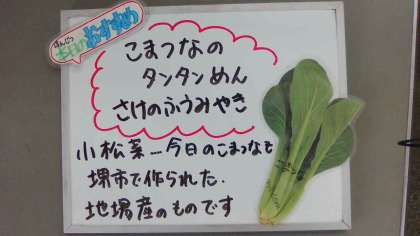 ほんじつ
本日のおすすめ
こまつなの
タンタンめん
さけのふうみやき
小松菜…今日のこまつなも
堺市で作られた.
地場産のものです